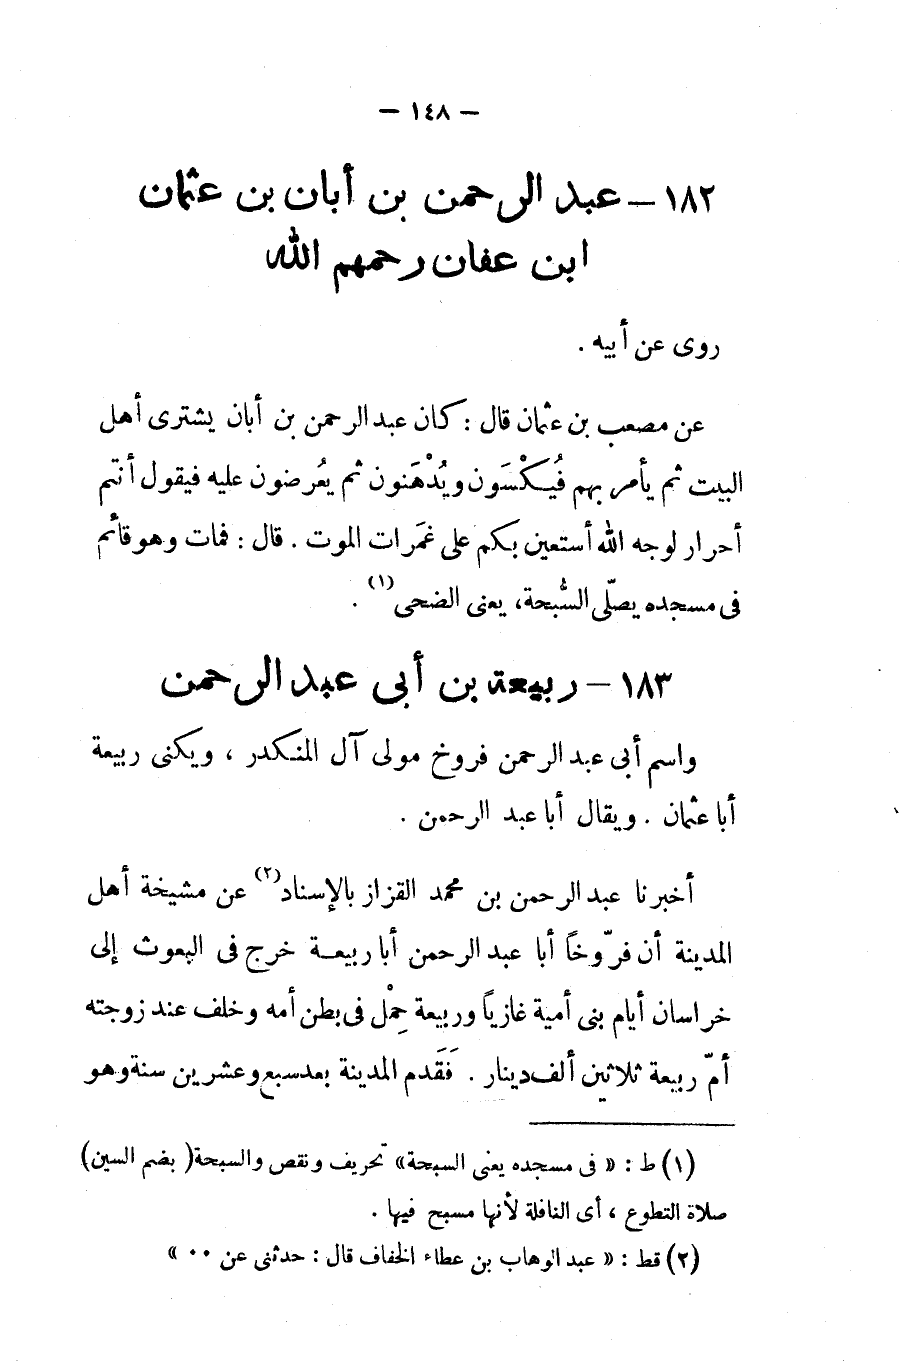 — ١٤٨ —
١٨٢ — عبد الرحمن بن أبان بن عثمان
ابن عفان رحمهم الله
روى عن أبيه .
عن مصعب بن عثمان قال : كان عبد الرحمن بن أبان يشترى أهل
البيت ثم يأمر بهم فُيكْسَون ويُدْهَنون ثم يُعرضون عليه فيقول أنتم
أحرار لوجه الله أستعين بكم على غمَرات الموت . قال : فمات وهو قائم
فى مسجده يصلّى السُّبحة، يعنى الضحى(١) .
١٨٣ — ربيعة بن أبى عبد الرحمن
واسم أبى عبد الرحمن فروخ مولى آل المنكدر ، ويكنى ربيعة
أبا عثمان . ويقال أبا عبد الرحمن .
أخبرنا عبد الرحمن بن محمد القزاز بالإسناد(٢) عن مشيخة أهل
المدينة أن فرّوخاً أبا عبد الرحمن أبا ربيعـة خرج فى البعوث إلى
خراسان أيام بنى أمية غازياً وربيعة حِمْل فى بطن أمه وخلف عند زوجته
أمّ ربيعة ثلاثين ألف دينار . فَقَدم المدينة بعد سبع وعشرين سنة وهو
(١) ط : « فى مسجده يعنى السبحة» تحريف ونقص والسبحة( بضم السين)
صلاة التطوع ، أى النافلة لأنها مسبح فيها .
(٢) قط : « عبد الوهاب بن عطاء الخفاف قال : حدثنى عن ٠٠ »